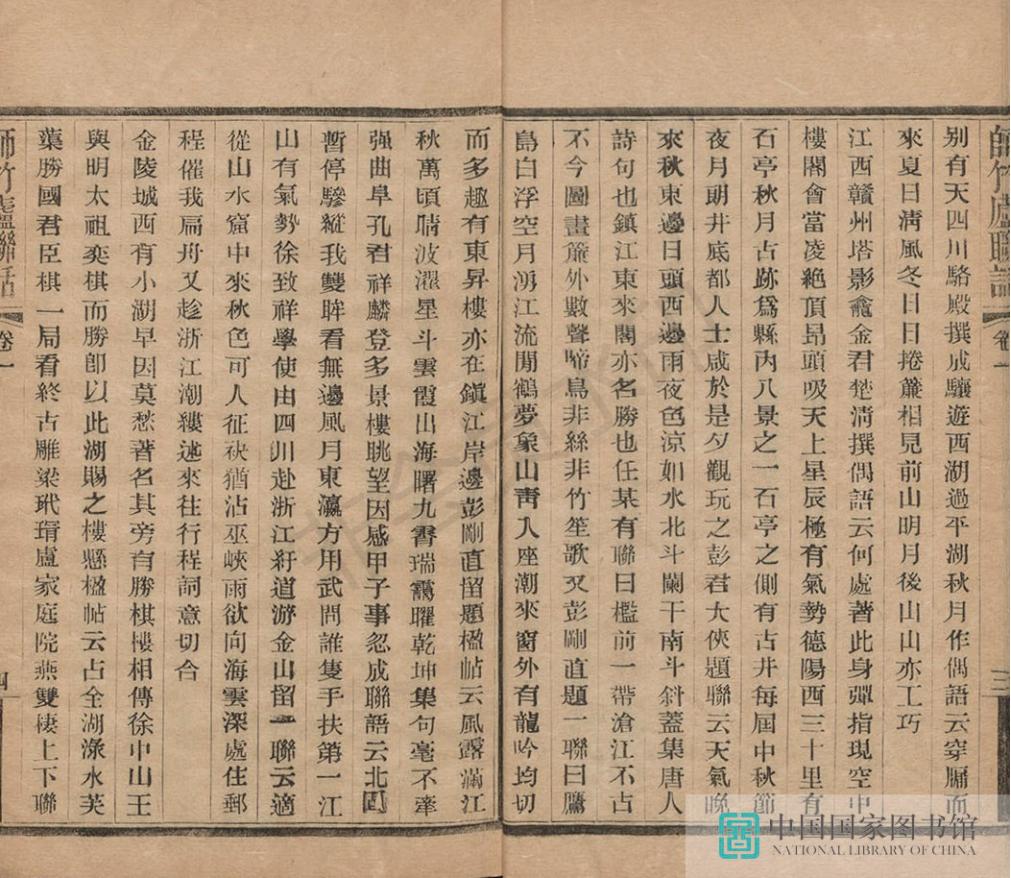 師竹廬聯話 卷一 三
別有天四川駱殿撰成驤遊西湖過平湖秋月作偶語云穿牖而
來夏日清風冬日日捲簾相見前山明月後山山亦工巧
江西贛州塔影龕金君楚清撰偶語云何處著此身彈指現空中
樓閣會當凌絕頂昂頭吸天上星辰極有氣勢德陽西三十里有
石亭秋月占跡爲縣內八景之一石亭之側有古井每屆中秋節
夜月朗井底都人士咸於是夕觀玩之彭君大俠題聯云天氣晚
來秋東邊日頭西邊雨夜色涼如水北斗闌干南斗斜蓋集唐人
詩句也鎮江東來閣亦名勝也任某有聯曰檻前一帶滄江不古
不今圖畫簾外數聲啼鳥非絲非竹笙歌又彭剛直題一聯曰鷹
島白浮空月湧江流閒鶴夢象山靑入座潮來窗外有龍吟均切
而多趣有東昇樓亦在鎭江岸邊彭剛直留題楹帖云風露滿江
秋萬頃晴波濯星斗雲霞出海曙九霄瑞靄曜乾坤集句毫不牽
强曲阜孔君祥麟登多景樓眺望因感甲子事忽成聯語云北固
暫停驂縱我雙眸看無邊風月東瀛方用武問誰隻手扶第一江
山有氣勢徐致祥學使由四川赴浙江紆道游金山留一聯云適
從山水窟中來秋色可人征袂猶沾巫峽雨欲向海雲深處住郵
程催我扁舟又趁浙江潮縷述來往行程詞意切合
金陵城西有小湖早因莫愁著名其旁有勝棋樓相傳徐中山王
與明太祖奕棋而勝卽以此湖賜之樓懸楹帖云占全湖淥水芙
蕖勝國君臣棋一局看終古雕梁玳瑁盧家庭院燕雙棲上下聯
師竹廬聯話 卷一 四
中国国家图书馆
NATIONAL LIBRARY OF CHINA